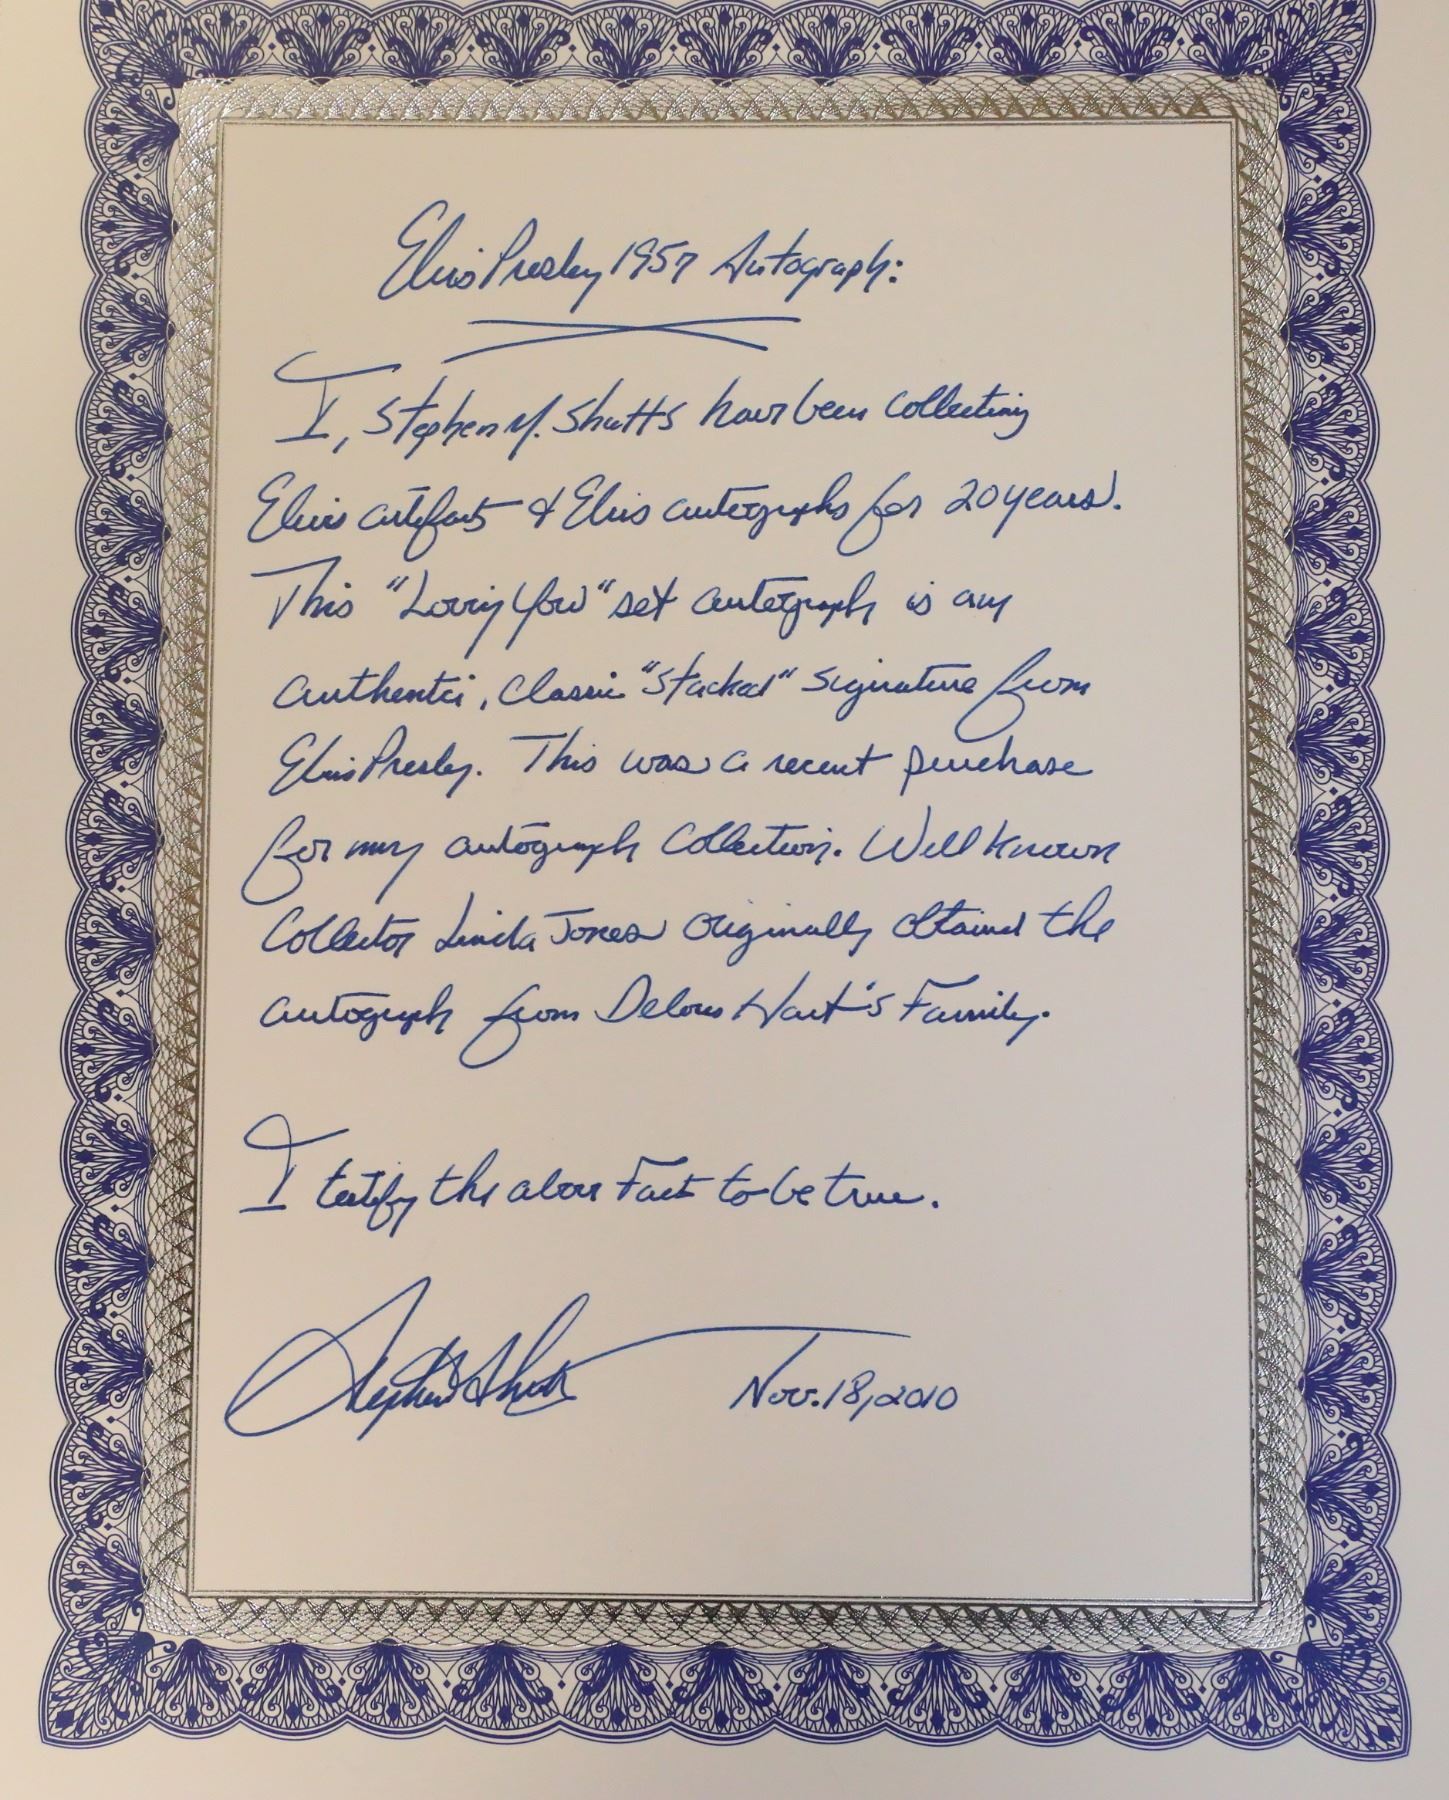 Elvis Presley 1957 Autograph:
I, Stephen M. Shutts have been collecting
Elvis artifacts & Elvis autographs for 20 years.
This "Loving You" set autograph is an
authentic, classic "stacked" signature from
Elvis Presley. This was a recent purchase
for my autograph collection. Well known
Collector Linda Jones originally obtained the
autograph from Delores Hart's Family.
I testify the above Fact to be true.
Stephen Shutts Nov. 18, 2010